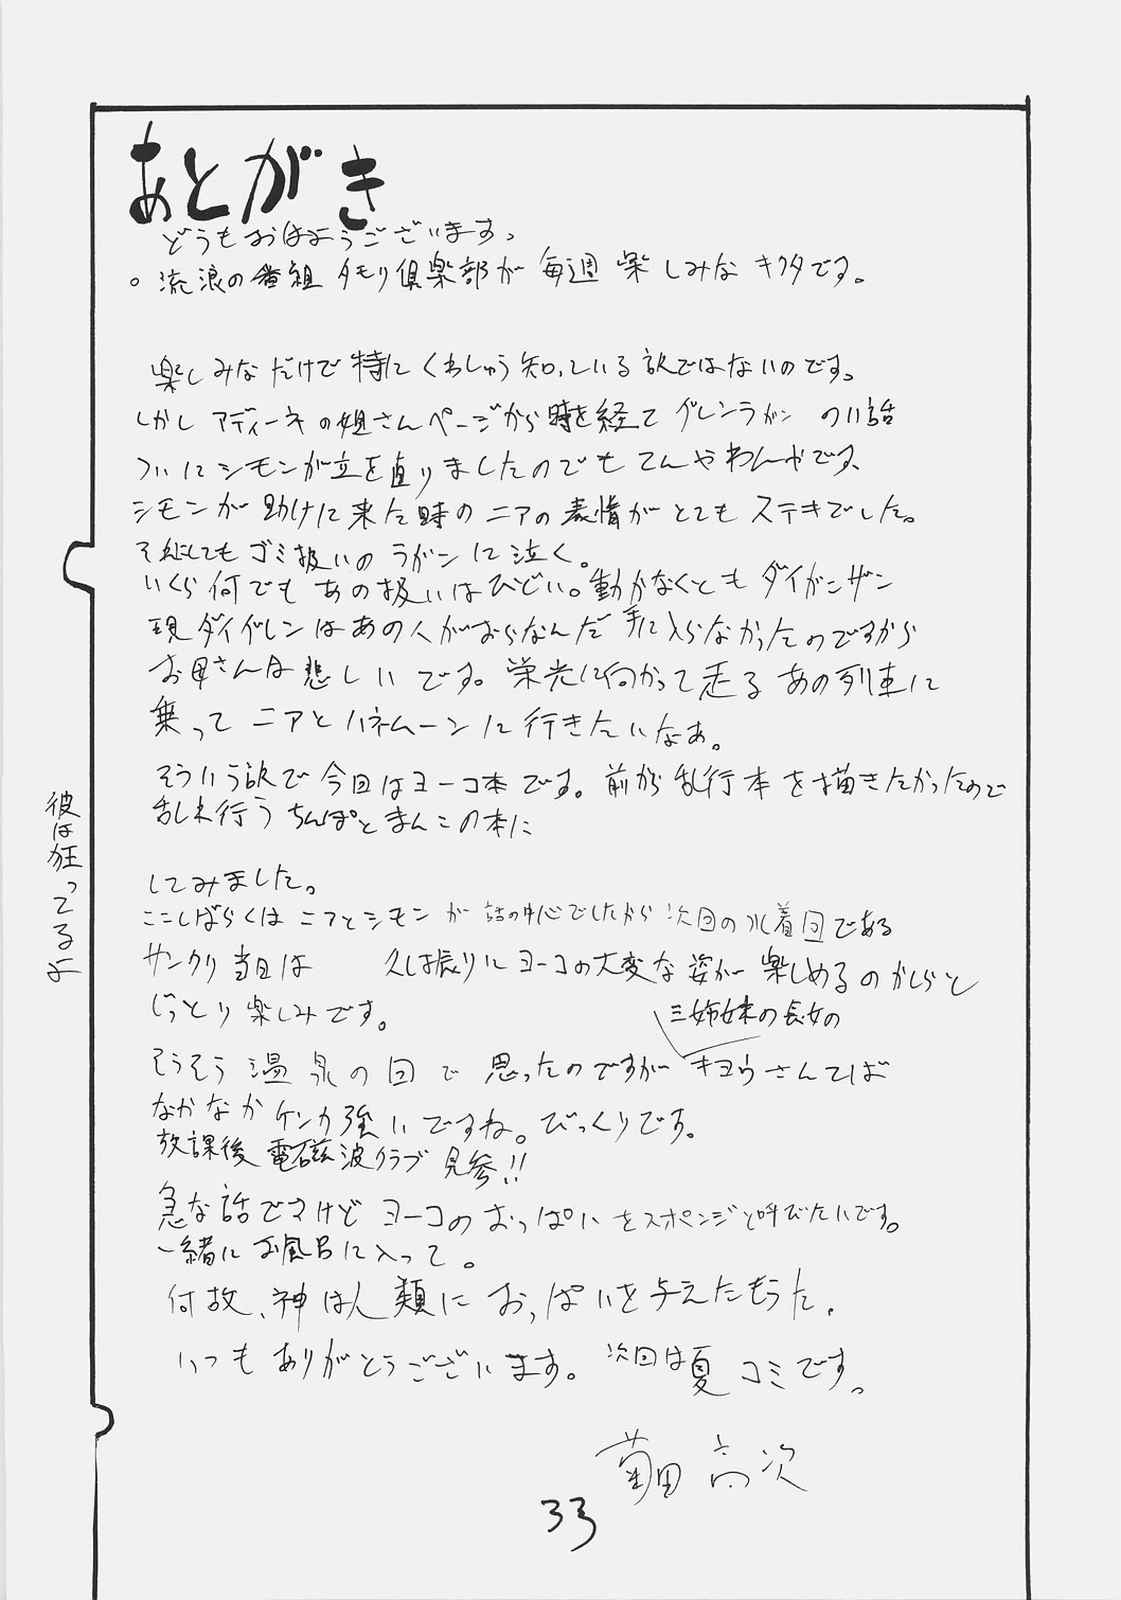 あとがき
どうもおはようございます。
流浪の番組タモリ倶楽部が毎週楽しみなキクタです。
楽しみなだけで特にくわしゅう知っている訳ではないのです。
しかしアディーネの姐さんページから時を経てグレンラガンの11話
ついにシモンが立を直りましたのでもてんやわんやです、
シモンが助けに来た時のニアの表情がとてもステキでした。
それにしてもゴミ扱いのラガンに泣く。
いくら何でもあの扱いはひどい。動かなくともダイガンザン
現ダイグレンはあの人がおらなんだ手に入らなかったのですから
お母さんは悲しいです。栄光に向かって走るあの列車に
乗ってニアとハネムーンに行きたいなぁ。
そういう訳で今回はヨーコ本です。前から乱行本を描きたかったので
乱れ行うちんぽとまんこの本に
してみました。
ここしばらくはニアとシモンが話の中心でしたから次回の水着回である
サンクリ当日は 久し振りにヨーコの大変な姿が楽しめるのかしらと
じっとり楽しみです。
三姉妹の長女の
そうそう温泉の回で思ったのですがキヨウさんてば
なかなかケンカ強いですね。びっくりです。
放課後電磁波クラブ見参!!
急な話ですけどヨーコのおっぱいをスポンジと呼びたいです。
一緒にお風呂に入って。
何故、神は人類におっぱいを与えたもうた。
いつもありがとうございます。次回は夏コミです。
菊田高次
33
彼は狂ってるよ